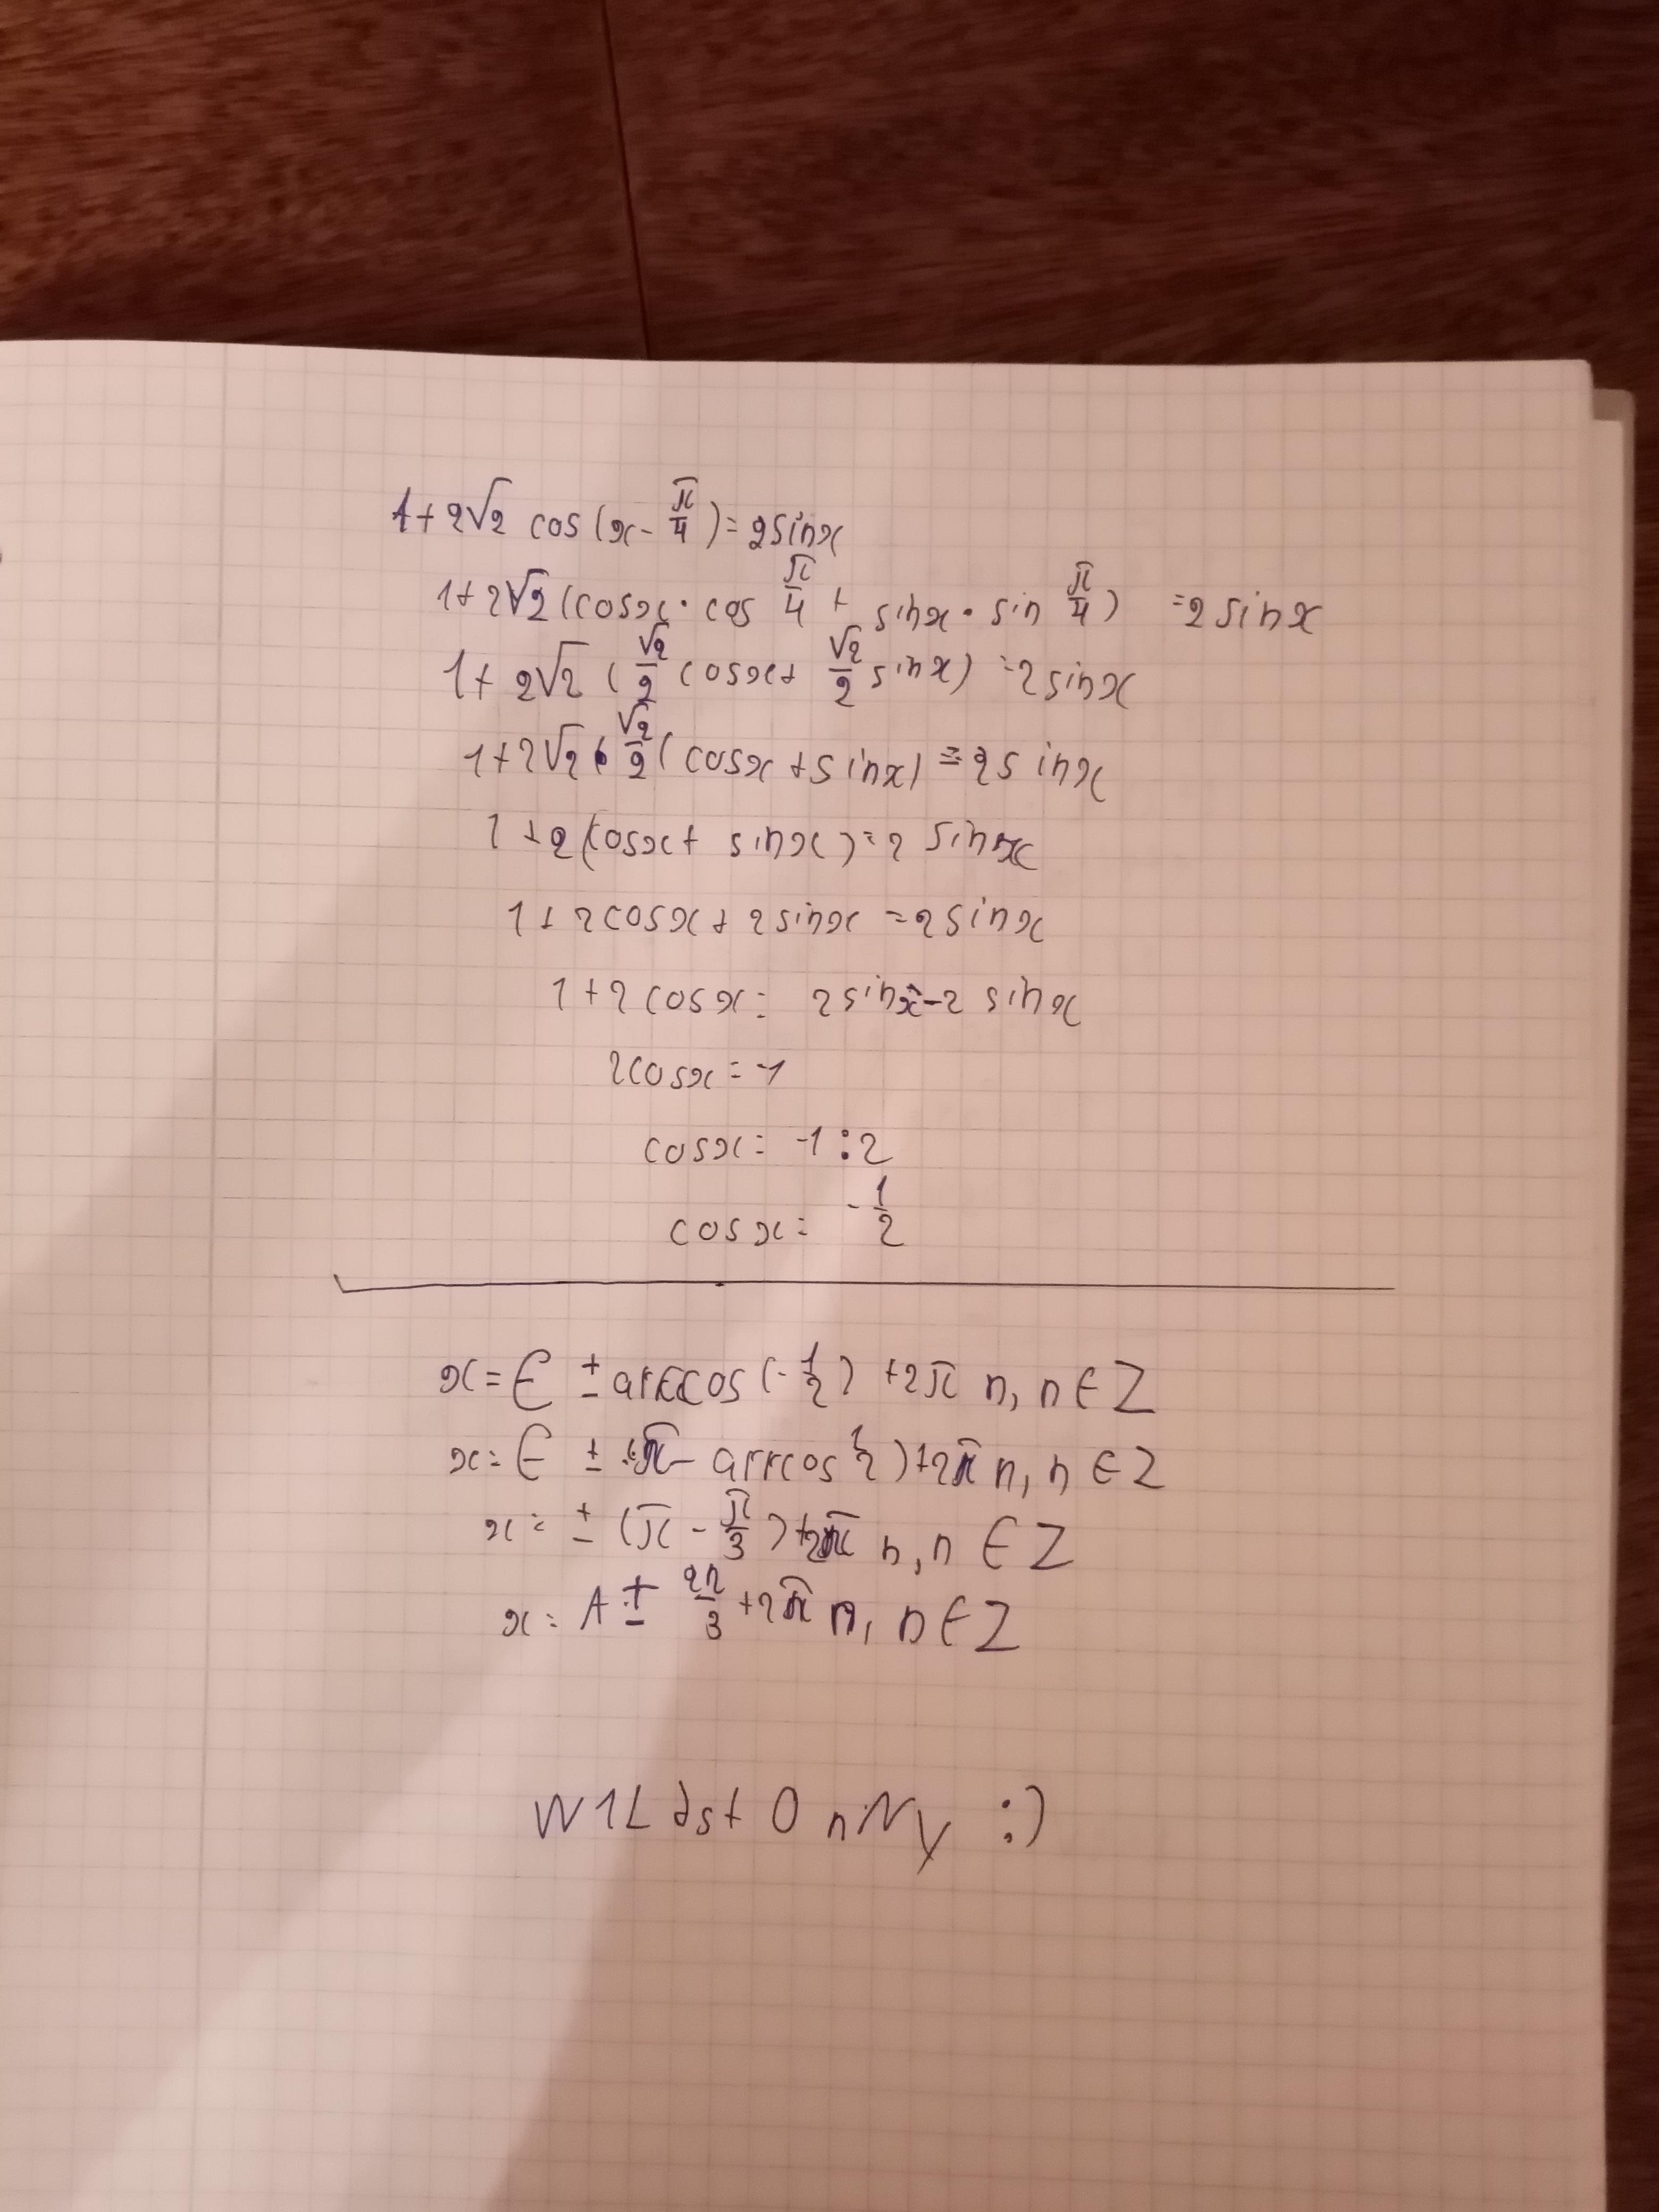 1+2√2 cos(x-π/4)=2sinx
1+2√2(cosx·cos π/4 + sinx·sin π/4) =2sinx
1+2√2(√2/2 cosx+ √2/2 sinx) =2sinx
1+2√2·√2/2(cosx+sinx)=2sinx
1+2(cosx+ sinx)=2 sinx
1+2cosx+2sinx =2sinx
1+2cosx= 2sinx-2 sinx
2cosx=-1
cosx= -1:2
cosx= -1/2
x=€ ±arccos(-1/2) +2π n, n∈Z
x=€ ± (π- arccos 1/2)+2π n, n∈Z
x= ± (π-π/3)+2π n, n∈Z
x= A± 2π/3+2π n, n∈Z
W1Ldst0nNy :)